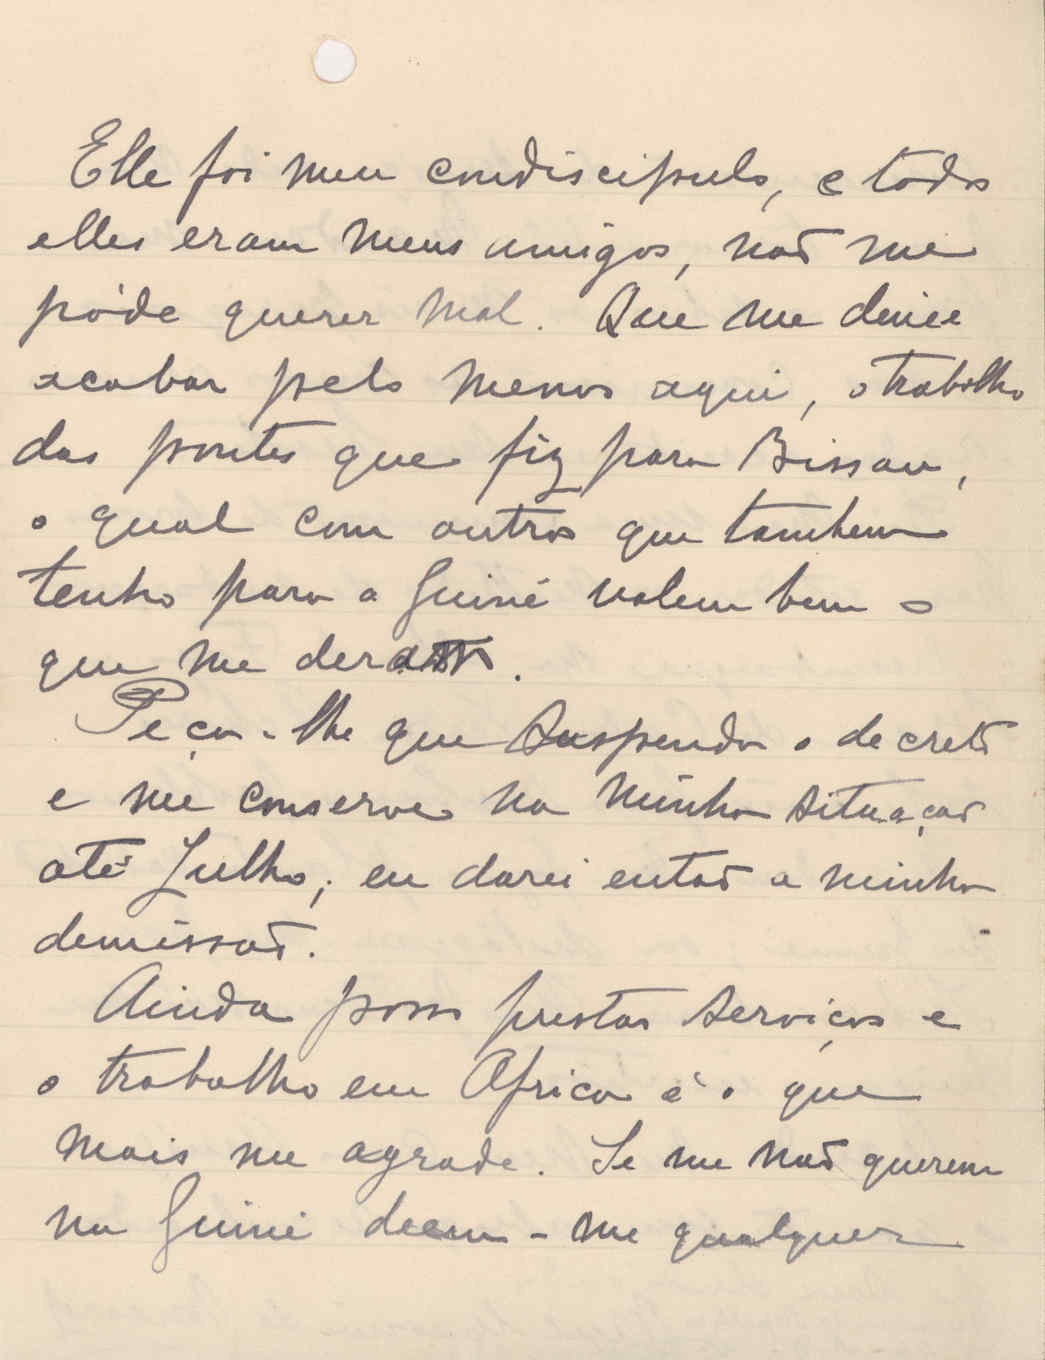 Elle foi meu condiscipulo, e todos
elles eram meus amigos, não me
póde querer mal. Que me deixe
acabar pelo menos aqui, o trabalho
das pontes que fiz para Bissau,
o qual com outros que tambem
tenho para a Guiné valem bem o
que me deram.
Peço-lhe que suspenda o decreto
e me conserve na minha situação
até Julho, eu darei então a minha
demissão.
Ainda posso prestar serviços e
o trabalho em Africa é o que
mais me agrada. Se me não querem
na Guiné deem-me qualquer